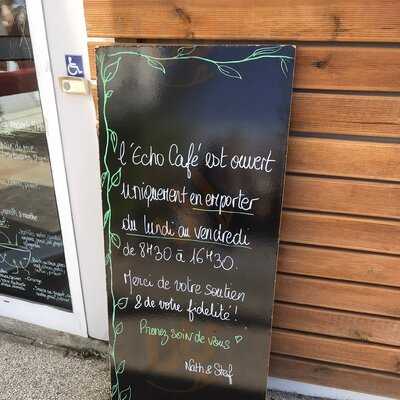 l'Echo Café est ouvert
uniquement en emporter
du lundi au vendredi
de 8H30 à 16H30.
Merci de votre soutien
& de votre fidelité !
Prenez soin de vous ♡
Nath & Stef